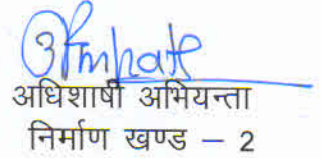 अधिशाषी अभियन्ता
निर्माण खण्ड – 2